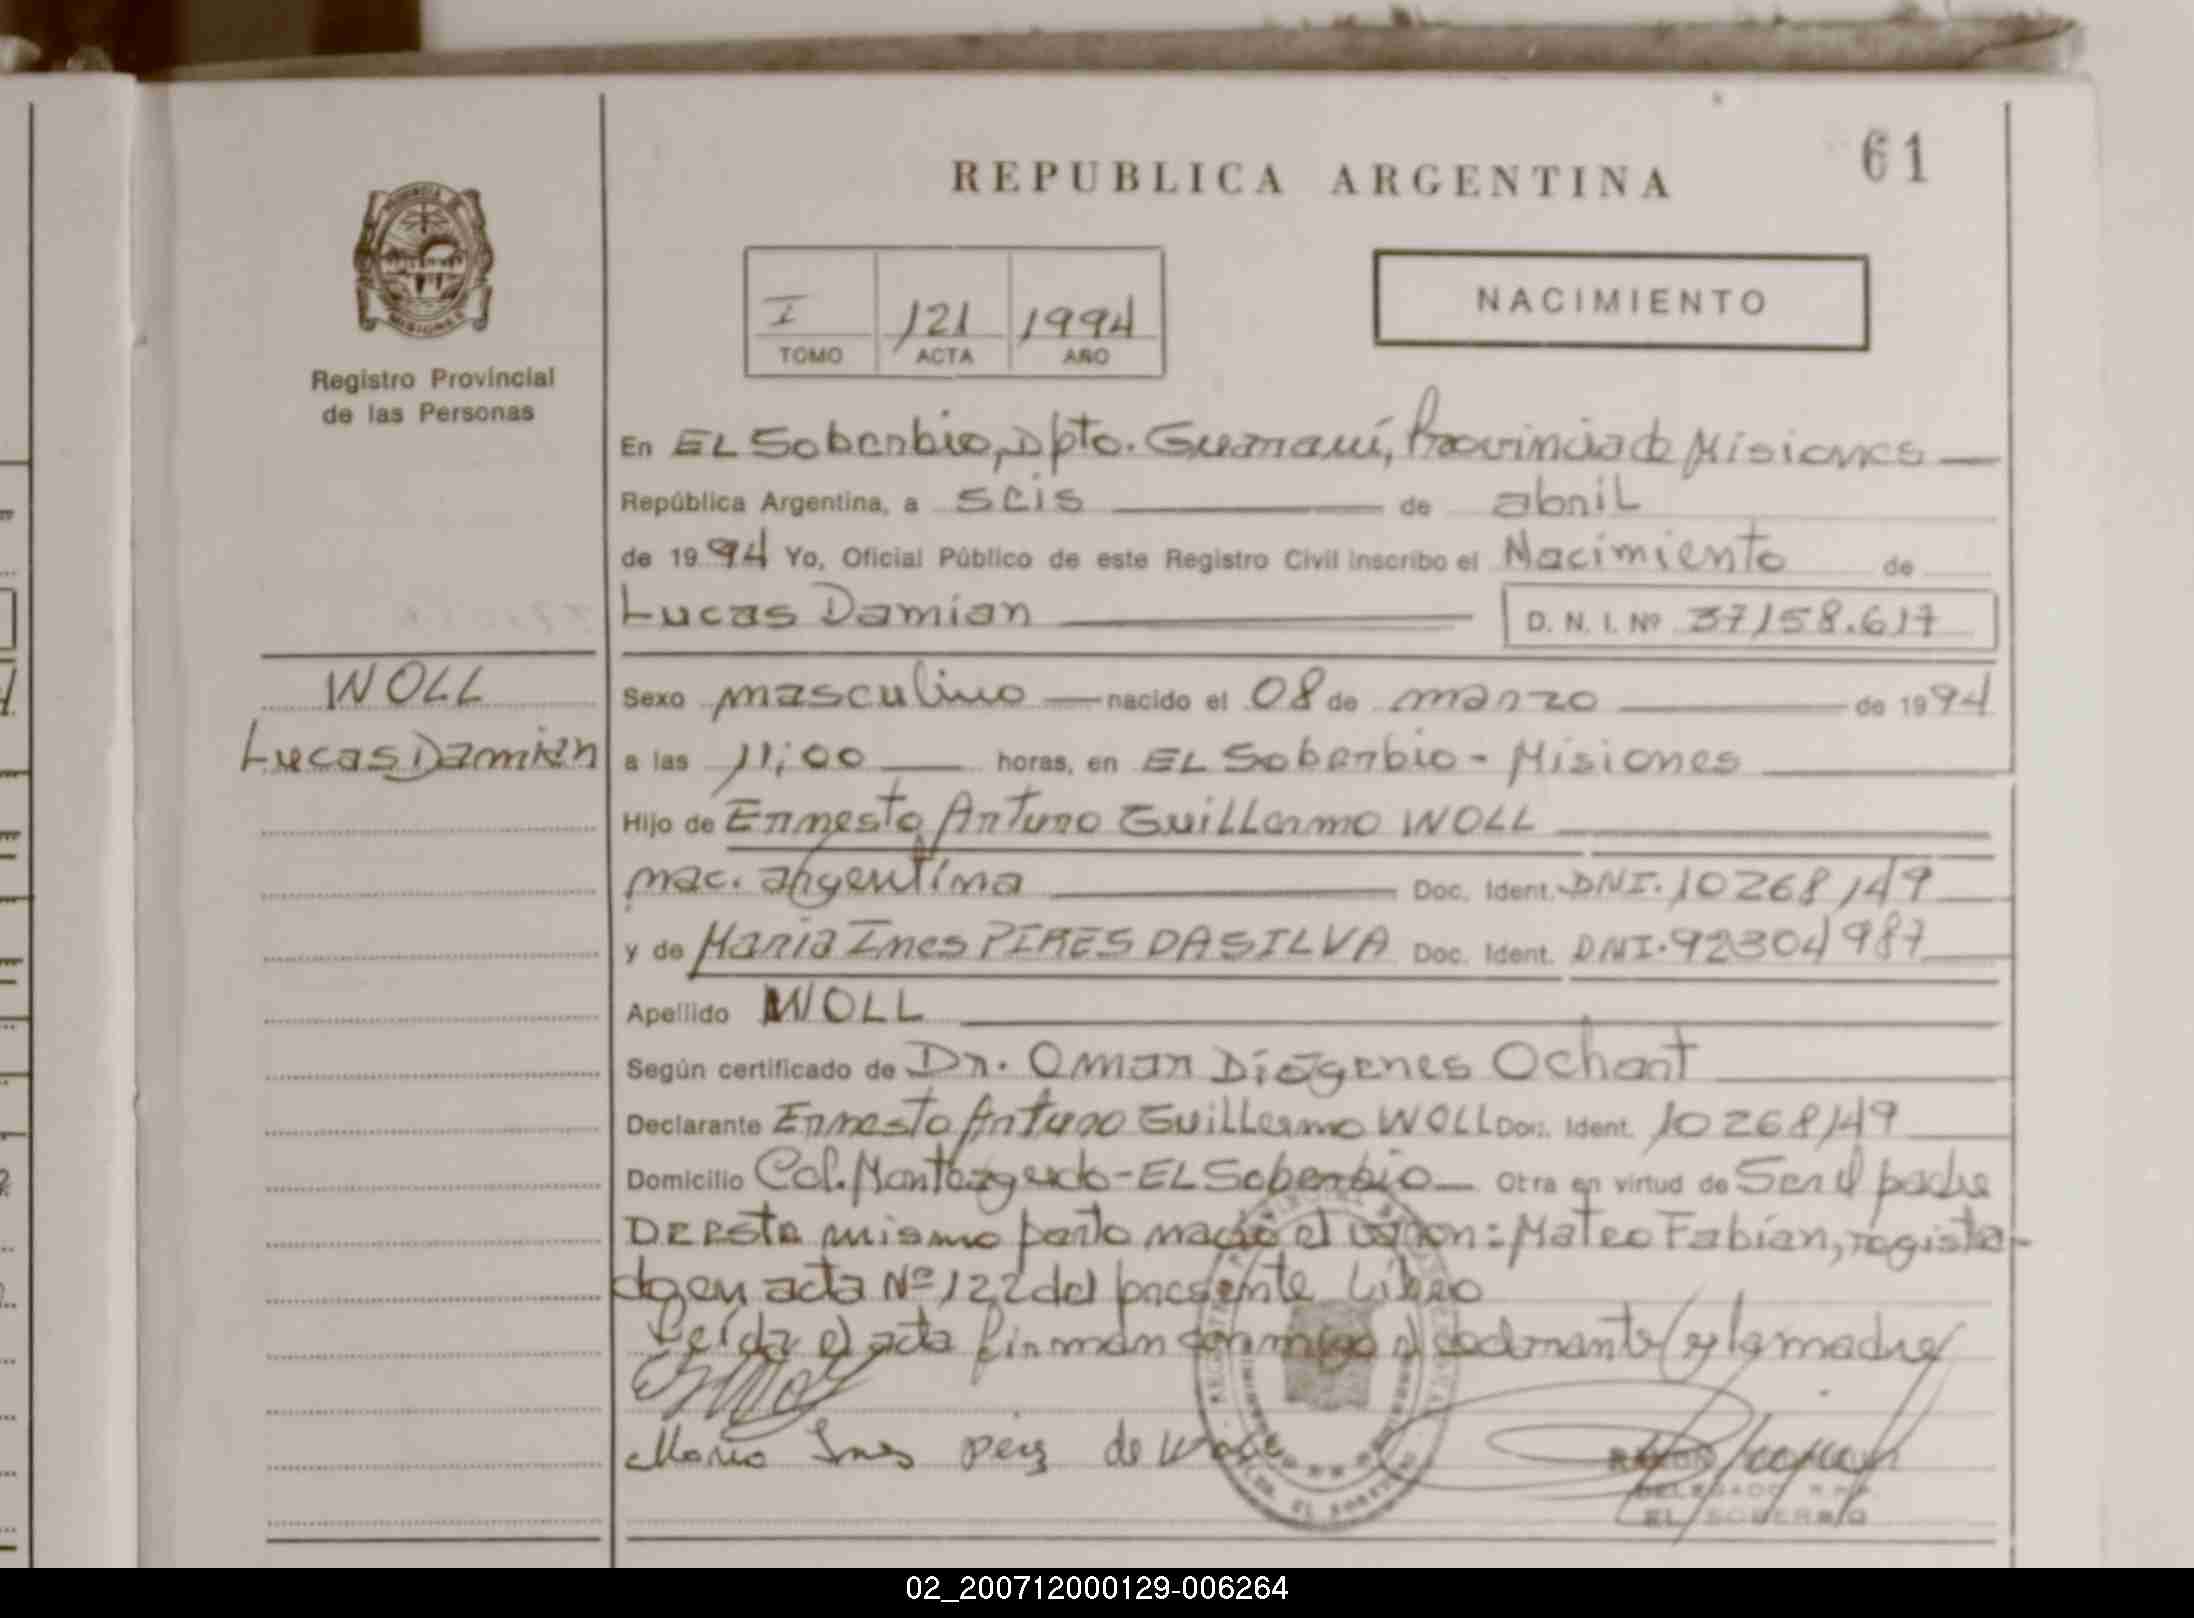 REPUBLICA ARGENTINA
61
NACIMIENTO
I 121 1994
TOMO ACTA AÑO
PROVINCIA DE
MISIONES
Registro Provincial
de las Personas
En EL Soberbio, Dpto. Guaraní, Provincia de Misiones
República Argentina, a seis de abril
de 1994 Yo, Oficial Público de este Registro Civil inscribo el Nacimiento de
Lucas Damian D. N. I. Nº 37158.617
WOLL
Lucas Damian
Sexo masculino nacido el 08 de marzo de 1994
a las 11;00 horas, en EL Soberbio - Misiones
Hijo de Ernesto Arturo Guillermo WOLL
nac. argentina Doc. Ident. DNI. 10268149
y de Maria Ines PIRES DASILVA Doc. Ident. DNI. 92304987
Apellido WOLL
Según certificado de Dr. Omar Diógenes Ochart
Declarante Ernesto Arturo Guillermo WOLL Doc. Ident. 10268149
Domicilio Col. Monteagudo - EL Soberbio Otra en virtud de Ser el padre
DE Este mismo parto nació el varon: Mateo Fabian, registra-
do en acta Nº 122 del presente Libro
Leída el acta firman conmigo el declarante (y la madre
Maria Ines de
RAMON
DELEGADO R.P.P.
EL SOBERBIO
EL SOBERBIO
02_200712000129-006264